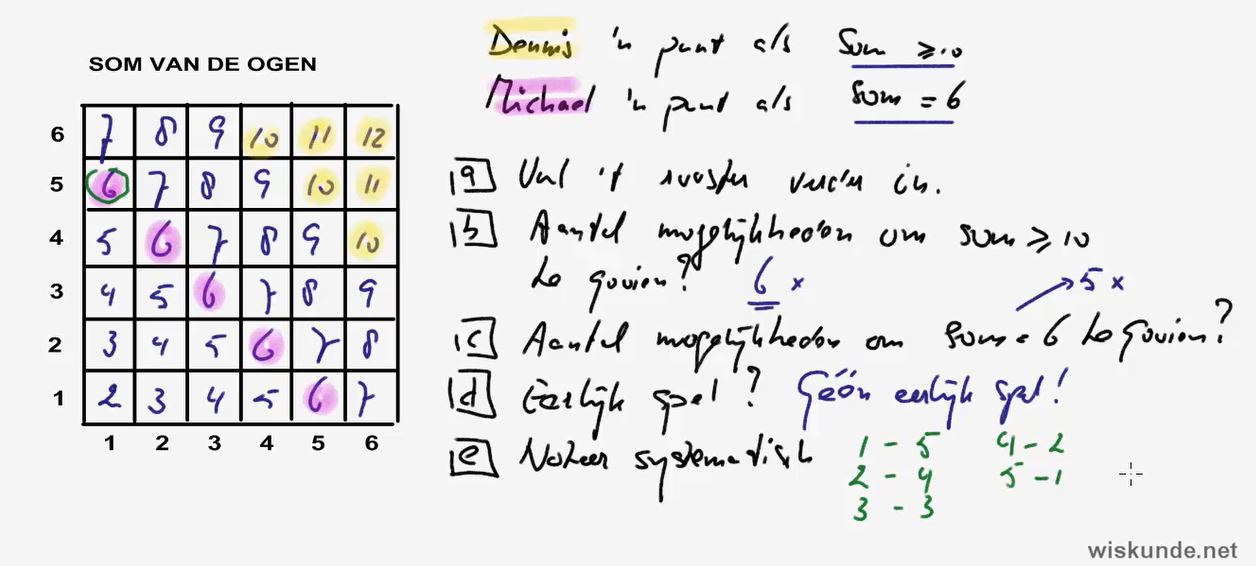 SOM VAN DE OGEN
6 7 8 9 10 11 12
5 6 7 8 9 10 11
4 5 6 7 8 9 10
3 4 5 6 7 8 9
2 3 4 5 6 7 8
1 2 3 4 5 6 7
1 2 3 4 5 6
Dennis 'n punt als som ≥ 10
Michael 'n punt als som = 6
a Vul 't rooster verder in.
b Aantal mogelijkheden om som ≥ 10
te gooien? 6 x
5 x
c Aantal mogelijkheden om som = 6 te gooien?
d Eerlijk spel? Géén eerlijk spel!
e Noteer systematisch
1 - 5 4 - 2
2 - 4 5 - 1
3 - 3
wiskunde.net